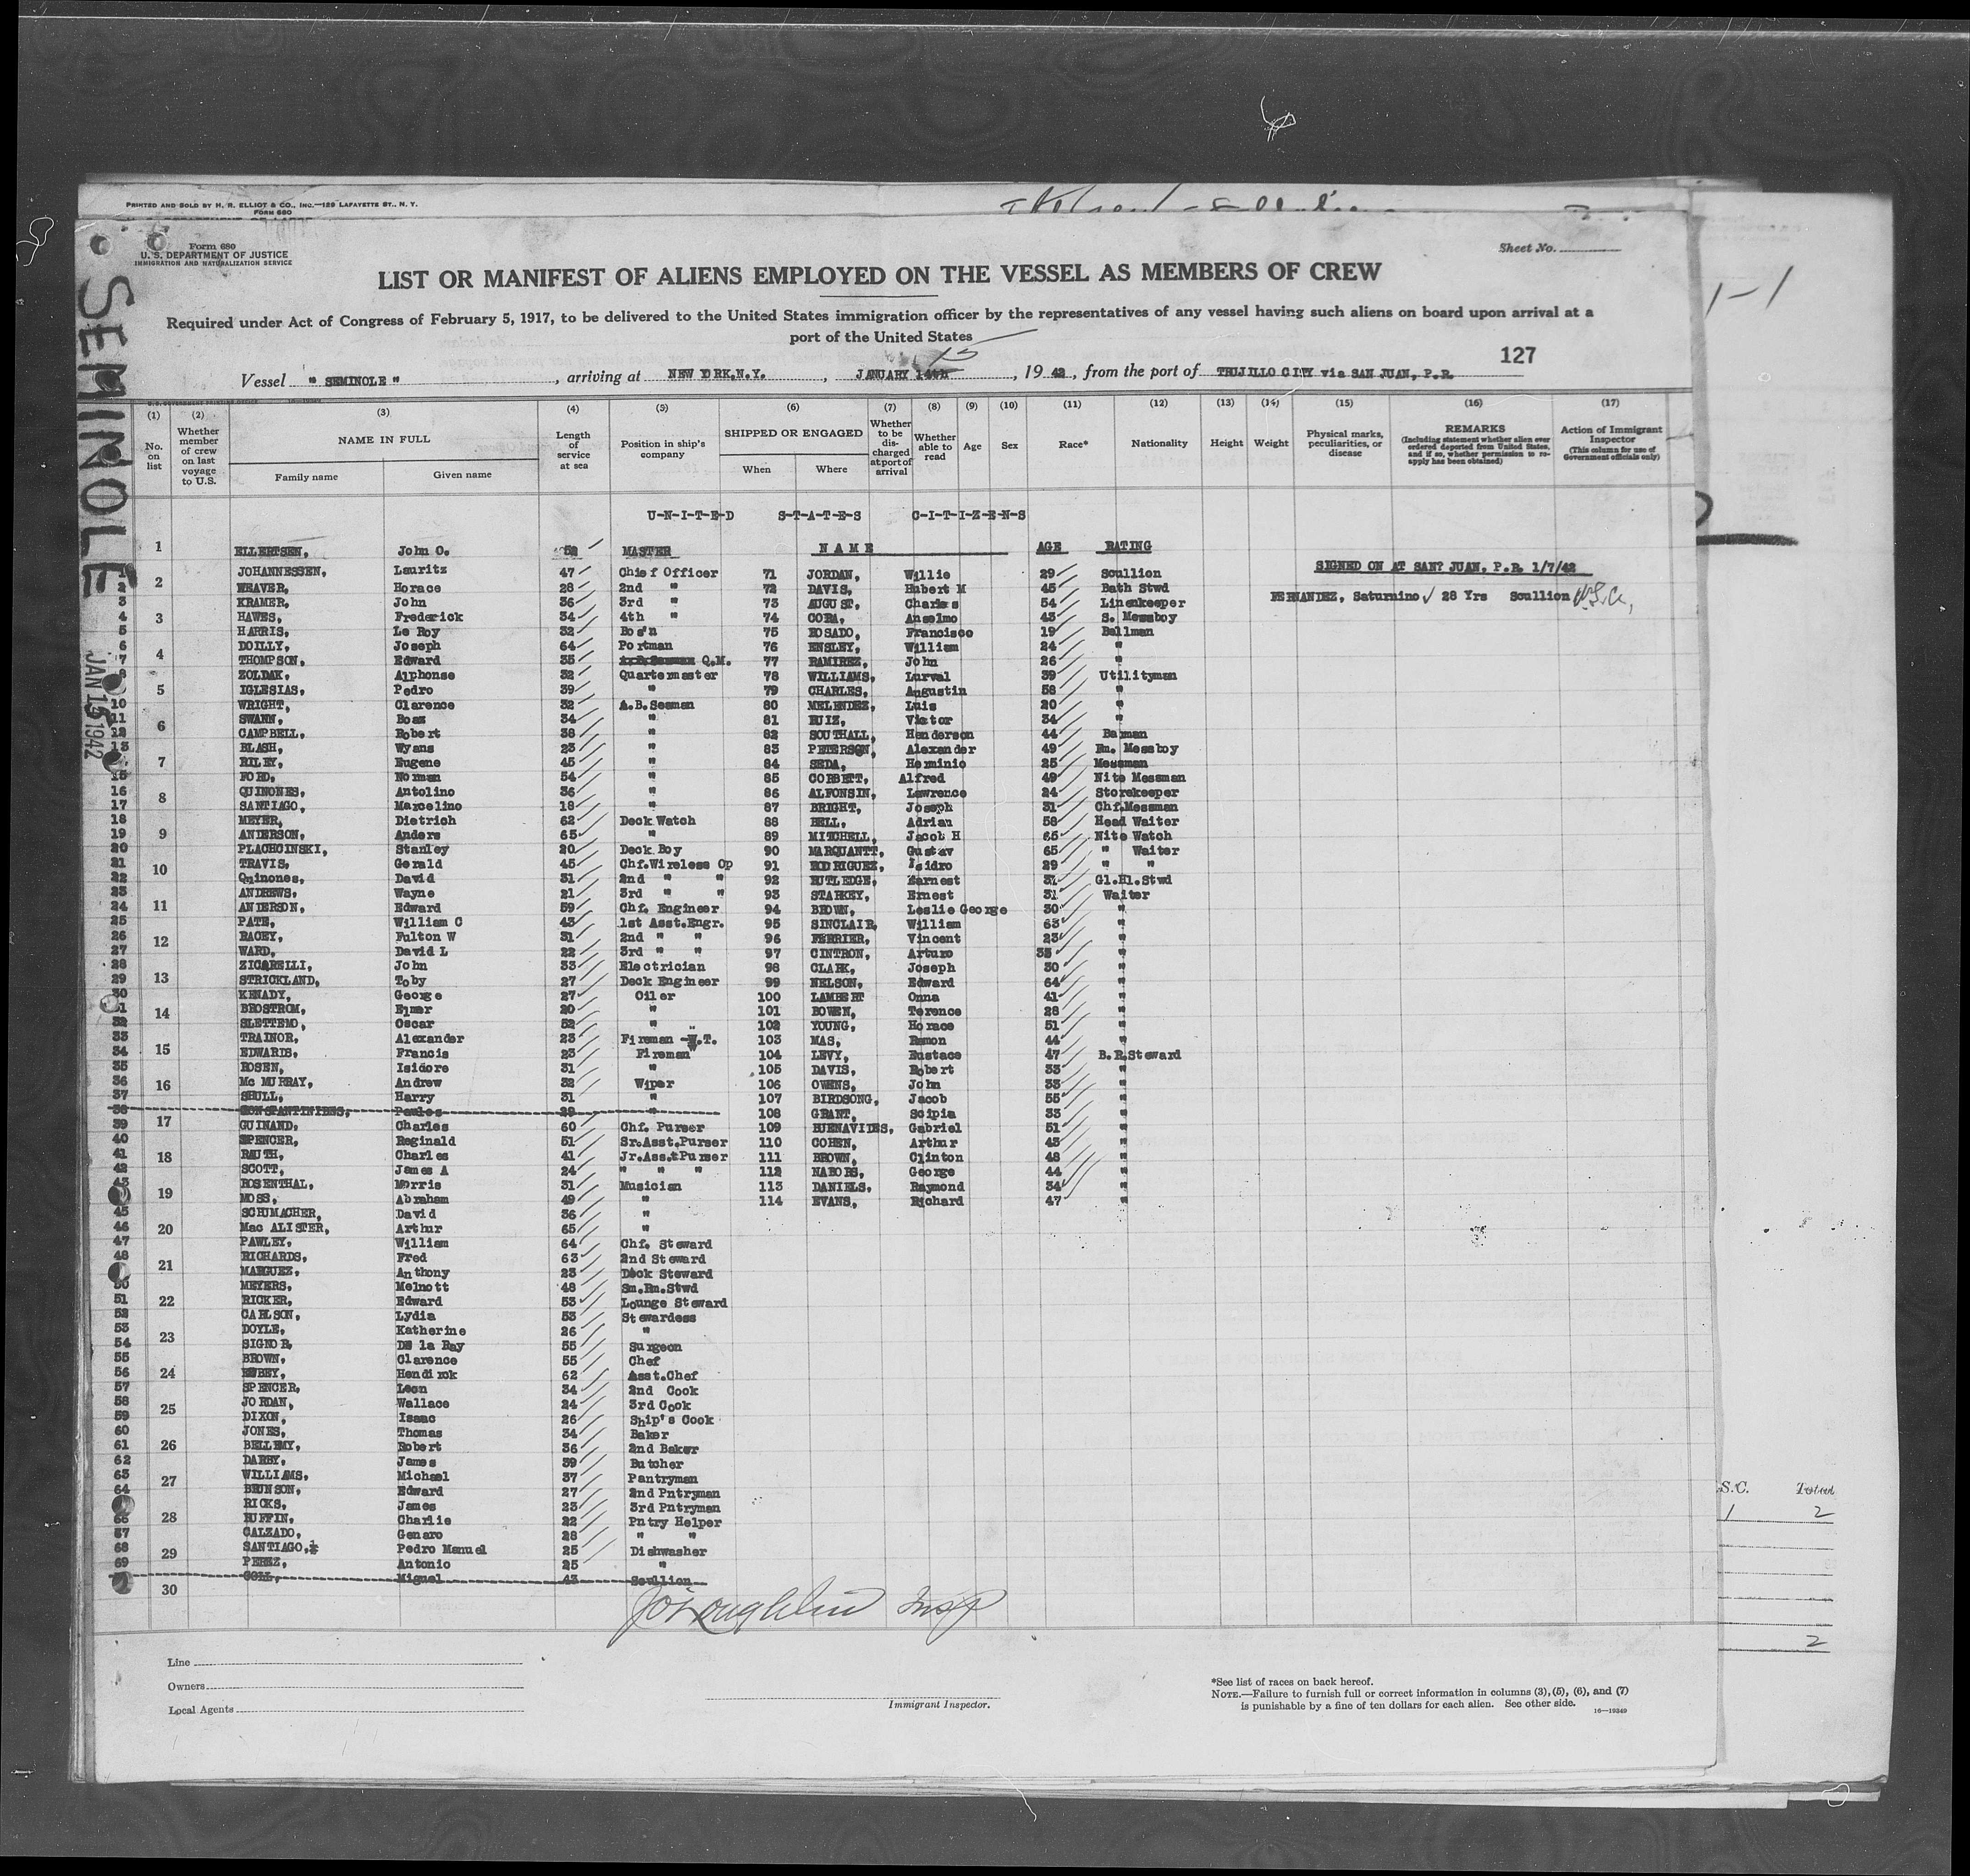 PRINTED AND SOLD BY H. R. ELLIOT & CO., INC.—129 LAFAYETTE ST., N. Y.
FORM 680
Form 680
U. S. DEPARTMENT OF JUSTICE
IMMIGRATION AND NATURALIZATION SERVICE
Sheet No.
SEMINOLE
JAN 15 1942
LIST OR MANIFEST OF ALIENS EMPLOYED ON THE VESSEL AS MEMBERS OF CREW
Required under Act of Congress of February 5, 1917, to be delivered to the United States immigration officer by the representatives of any vessel having such aliens on board upon arrival at a
port of the United States
127
15
Vessel " SEMINOLE ", arriving at NEW YORK,N.Y., JANUARY 14th, 1942, from the port of TRUJILLO CITY via SAN JUAN, P.R.
(1) (2) (3) (4) (5) (6) (7) (8) (9) (10) (11) (12) (13) (14) (15) (16) (17)
No. on list
Whether member of crew on last voyage to U.S.
NAME IN FULL
Family name Given name
Length of service at sea
Position in ship's company
SHIPPED OR ENGAGED
When Where
Whether to be discharged at port of arrival
Whether able to read
Age
Sex
Race*
Nationality
Height
Weight
Physical marks, peculiarities, or disease
REMARKS
(Including statement whether alien ever ordered deported from United States, and if so, whether permission to reapply has been obtained)
Action of Immigrant Inspector
(This column for use of Government officials only)
U-N-I-T-E-D S-T-A-T-E-S C-I-T-I-Z-E-N-S
ELLERTSEN, John O. 52 MASTER NAME AGE RATING
SIGNED ON AT SAN? JUAN, P.R. 1/7/42
FERNANDEZ, Saturnino 28 Yrs Scullion U.S.C.
1 JOHANNESSEN, Lauritz 47 Chief Officer 71 JORDAN, Willie 29 Scullion
2 WEAVER, Horace 28 2nd " 72 DAVIS, Hubert M 45 Bath Stwd
3 KRAMER, John 36 3rd " 73 AUGUST, Charles 54 Linenkeeper
4 HAWES, Frederick 34 4th " 74 CORA, Anselmo 43 S. Messboy
5 HARRIS, Le Roy 32 Bos'n 75 ROSADO, Francisco 19 Bellman
6 DOILLY, Joseph 64 Portman 76 ENSLEY, William 24 "
7 THOMPSON, Edward 35 Q.M. 77 RAMIREZ, John 26 "
8 ZOLDAK, Alphonse 32 Quartermaster 78 WILLIAMS, Lurval 39 Utilityman
IGLESIAS, Pedro 39 " 79 CHARLES, Augustin 58 "
10 WRIGHT, Clarence 32 A.B.Seaman 80 MELENDEZ, Luis 20 "
11 SWANN, Boaz 34 " 81 RUIZ, Victor 34 "
12 CAMPBELL, Robert 38 " 82 SOUTHALL, Henderson 44 Barman
13 BLASH, Wyans 23 " 83 PETERSON, Alexander 49 Em. Messboy
RILEY, Eugene 45 " 84 SEDA, Herminio 25 Messman
15 FORD, Norman 54 " 85 CORBETT, Alfred 49 Nite Messman
16 QUINONES, Antolino 36 " 86 ALFONSIN, Lawrence 24 Storekeeper
17 SANTIAGO, Marcelino 18 " 87 BRIGHT, Joseph 31 Chf.Messman
18 MEYER, Dietrich 62 Deck Watch 88 BELL, Adrian 58 Head Waiter
19 ANDERSON, Anders 65 " 89 MITCHELL, Jacob H 65 Nite Watch
20 PLACHCINSKI, Stanley 20 Deck Boy 90 MARQUANTT, Gustav 65 " Waiter
21 TRAVIS, Gerald 45 Chf.Wireless Op 91 RODRIGUEZ, Isidro 29 " "
22 Quinones, David 31 2nd " " 92 RUTLEDGE, Earnest 31 Gl.Hl.Stwd
23 ANDREWS, Wayne 21 3rd " " 93 STARKEY, Ernest 31 Waiter
24 ANDERSON, Edward 59 Chf. Engineer 94 BROWN, Leslie George 30 "
25 PATE, William C 43 1st Asst.Engr. 95 SINCLAIR, William 63 "
26 RACEY, Fulton W 31 2nd " " 96 FERRIER, Vincent 23 "
27 WARD, David L 22 3rd " " 97 CINTRON, Arturo 35 "
28 ZIGARELLI, John 33 Electrician 98 CLARK, Joseph 30 "
29 STRICKLAND, Toby 27 Deck Engineer 99 NELSON, Edward 64 "
30 KENADY, George 27 Oiler 100 LAMBERT Onna 41 "
31 BROSTROM, Elmer 20 " 101 BOWEN, Terence 28 "
32 SLETTEMO, Oscar 52 " 102 YOUNG, Horace 51 "
33 TRAINOR, Alexander 23 Fireman -W.T. 103 MAS, Ramon 44 "
34 EDWARDS, Francis 23 Fireman 104 LEVY, Eustace 47 B.R.Steward
35 ROSEN, Isidore 31 " 105 DAVIS, Robert 33 "
36 Mc MURRAY, Andrew 32 Wiper 106 OWENS, John 33 "
37 SHULL, Harry 31 " 107 BIRDSONG, Jacob 55 "
38 CONSTANTINIDES, Paulos 29 " 108 GRANT, Scipia 33 "
39 GUINAND, Charles 60 Chf. Purser 109 BUENAVIDES, Gabriel 51 "
40 SPENCER, Reginald 51 Sr.Asst.Purser 110 COHEN, Arthur 43 "
41 RAUTH, Charles 41 Jr.Asst.Purser 111 BROWN, Clinton 48 "
42 SCOTT, James A 24 " " " 112 NABORS, George 44 "
43 ROSENTHAL, Morris 31 Musician 113 DANIELS, Raymond 34 "
MOSS, Abraham 49 " 114 EVANS, Richard 47 "
45 SCHUMACHER, David 36 "
46 Mac ALISTER, Arthur 65 "
47 PAWLEY, William 64 Chf. Steward
48 RICHARDS, Fred 63 2nd Steward
MARGUEZ, Anthony 23 Deck Steward
50 MEYERS, Melnott 48 Sm.Rm.Stwd
51 RICKER, Edward 53 Lounge Steward
52 CARLSON, Lydia 53 Stewardess
53 DOYLE, Katherine 26 "
54 SIGNOR, DE la Ray 55 Surgeon
55 BROWN, Clarence 55 Chef
56 ROBEY, Hendirck 62 Asst.Chef
57 SPENCER, Leon 34 2nd Cook
58 JORDAN, Wallace 24 3rd Cook
59 DIXON, Isaac 26 Ship's Cook
60 JONES, Thomas 34 Baker
61 BELLEMY, Robert 36 2nd Baker
62 DARBY, James 39 Butcher
63 WILLIAMS, Michael 37 Pantryman
64 BRUNSON, Edward 27 2nd Pntryman
RICKS, James 23 3rd Pntryman
66 RUFFIN, Charlie 22 Pntry Helper
67 CALZADO, Genaro 28 " "
68 SANTIAGO, Pedro Manuel 25 Dishwasher
69 PEREZ, Antonio 25 "
COLL, Miguel 43 Scullion
1
2
3
4
5
6
7
8
9
10
11
12
13
14
15
16
17
18
19
20
21
22
23
24
25
26
27
28
29
30
Insp
Line
Owners
Local Agents
Immigrant Inspector.
*See list of races on back hereof.
NOTE.—Failure to furnish full or correct information in columns (3), (5), (6), and (7)
is punishable by a fine of ten dollars for each alien. See other side.
16—19349
1-1
S.C. Total
1 2
2